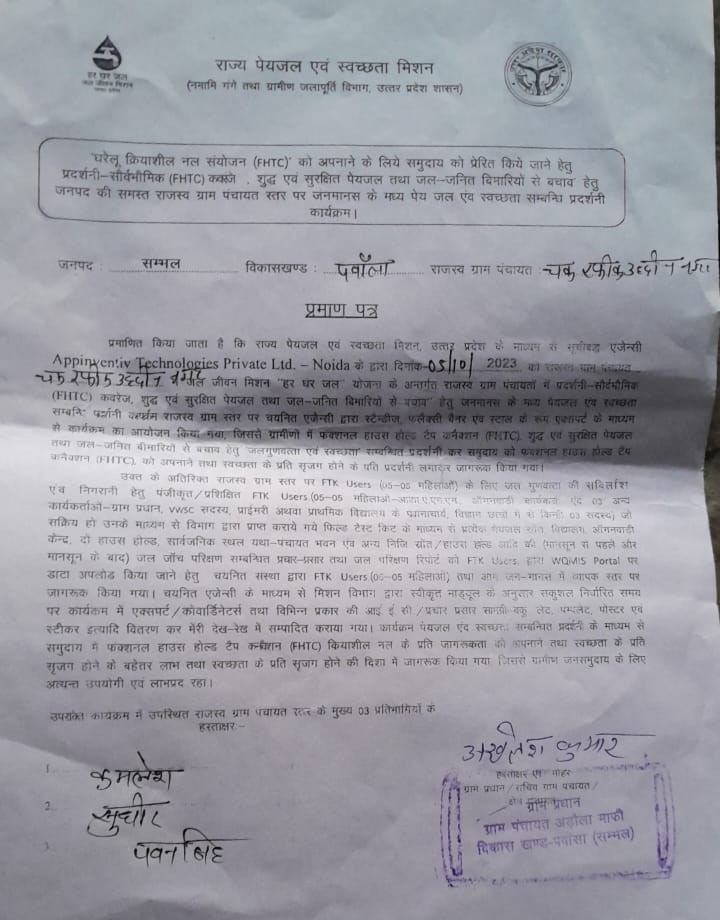 हर घर जल
जल जीवन मिशन
राज्य पेयजल एवं स्वच्छता मिशन
(नमामि गंगे तथा ग्रामीण जलापूर्ति विभाग, उत्तर प्रदेश शासन)
'घरेलू क्रियाशील नल संयोजन (FHTC)' को अपनाने के लिये समुदाय को प्रेरित किये जाने हेतु
प्रदर्शनी–सौर्वभौमिक (FHTC) कवरेज , शुद्ध एवं सुरक्षित पेयजल तथा जल–जनित बिमारियों से बचाव हेतु
जनपद की समस्त राजस्व ग्राम पंचायत स्तर पर जनमानस के मध्य पेय जल एंव स्वच्छता सम्बन्धि प्रदर्शनी
कार्यक्रम।
जनपद : सम्भल विकासखण्ड : पवाँसा राजस्व ग्राम पंचायत : चक रफीकउददीन नगर
प्रमाण पत्र
प्रमाणित किया जाता है कि राज्य पेयजल एवं स्वच्छता मिशन, उत्तर प्रदेश के माध्यम से सूचीबद्ध एजेन्सी
Appinventiv Technologies Private Ltd. – Noida के द्वारा दिनांक 05/10/ 2023 को
चक रफीकउददीन नगर जल जीवन मिशन "हर घर जल" योजना के अन्तर्गत राजस्व ग्राम पंचायतों में प्रदर्शनी–सौर्वभौमिक
(FHTC) कवरेज, शुद्ध एवं सुरक्षित पेयजल तथा जल–जनित बिमारियों से बचाव हेतु जनमानस के मध्य पेयजल एंव स्वच्छता
सम्बन्धि प्रर्दशनी कार्यक्रम राजस्व ग्राम स्तर पर चयनित एजेन्सी द्वारा स्टेन्डीज, फलैक्सी बैनर एंव स्टाल के रूप एक्सपर्ट के माध्यम
से कार्यक्रम का आयोजन किया गया, जिससे ग्रामीणों में फंक्शनल हाउस होल्ड टैप कनैक्शन (FHTC), शुद्ध एवं सुरक्षित पेयजल
तथा जल–जनित बीमारियों से बचाव हेतु 'जलगुणवत्ता एंव स्वच्छता' सम्बन्धित प्रदर्शनी कर समुदाय को फंक्शनल हाउस होल्ड टैप
कनैक्शन (FHTC), को अपनाने तथा स्वच्छता के प्रति सृजग होने के प्रति प्रदर्शनी लगाकर जागरूक किया गया।
उक्त के अतिरिक्त राजस्व ग्राम स्तर पर FTK Users (05–05 महिलाओं) के लिए जल गुणवत्ता की सर्विलांश
एंव निगरानी हेतु पंजीकृत/प्रशिक्षित FTK Users (05–05 महिलाओं–आशा, ए.एन.एम, ऑगनवाडी कार्यकत्री एंव 03 अन्य
कार्यकर्ताओं–ग्राम प्रधान, VWSC सदस्य, प्राईमरी अथवा प्राथमिक विद्यालय के प्रधानाचार्य, विद्वान छात्रों में से किन्ही 03 सदस्य) जो
सक्रिय हो उनके माध्यम से विभाग द्वारा प्राप्त कराये गये फिल्ड टेस्ट किट के माध्यम से प्रत्येक पेयजल स्रोत विद्यालय, ऑगनवाडी
केन्द्र, दो हाउस होल्ड, सार्वजनिक स्थल यथा–पंचायत भवन एंव अन्य निजि स्रोत/हाउस होल्ड आदि की (मानसून से पहले और
मानसून के बाद) जल जाँच परिक्षण सम्बन्धित प्रचार–प्रसार तथा जल परिक्षण रिपोर्ट को FTK Users, द्वारा WQMIS Portal पर
डाटा अपलोड किया जाने हेतु चयनित संस्था द्वारा FTK Users (05–05 महिलाओं) तथा आम जन–मानस में व्यापक स्तर पर
जागरूक किया गया। चयनित एजेन्सी के माध्यम से मिशन विभाग द्वारा स्वीकृत माड्यूल के अनुसार सकुशल निर्धारित समय
पर कार्यक्रम में एक्सपर्ट/कोवार्डिनेटर्स तथा विभिन्न प्रकार की आई.ई.सी./प्रचार प्रसार सामग्री–बुक लेट, पम्पलेट, पोस्टर एंव
स्टीकर इत्यादि वितरण कर मेरी देख–रेख में सम्पादित कराया गया। कार्यक्रम पेयजल एंव स्वच्छता सम्बन्धित प्रदर्शनी के माध्यम से
समुदाय में फंक्शनल हाउस होल्ड टैप कनैक्शन (FHTC) कियाशील नल के प्रति जागरूकता को अपनाने तथा स्वच्छता के प्रति
सृजग होने के बेहतर लाभ तथा स्वच्छता के प्रति सृजग होने की दिशा में जागरूक किया गया, जिससे ग्रामीण जनसमुदाय के लिए
अत्यन्त उपयोगी एवं लाभप्रद रहा।
उपरोक्त कार्यक्रम में उपस्थित राजस्व ग्राम पंचायत स्तर के मुख्य 03 प्रतिभागियों के
हस्ताक्षरः–
1. कमलेश
2. सुधीर
3. पवन सिंह
अखिलेश कुमार
हस्ताक्षर एवं मोहर
ग्राम प्रधान/सचिव ग्राम पंचायत/
ग्राम प्रधान
ग्राम पंचायत अझौला माफी
विकास खण्ड-पवांसा (सम्भल)